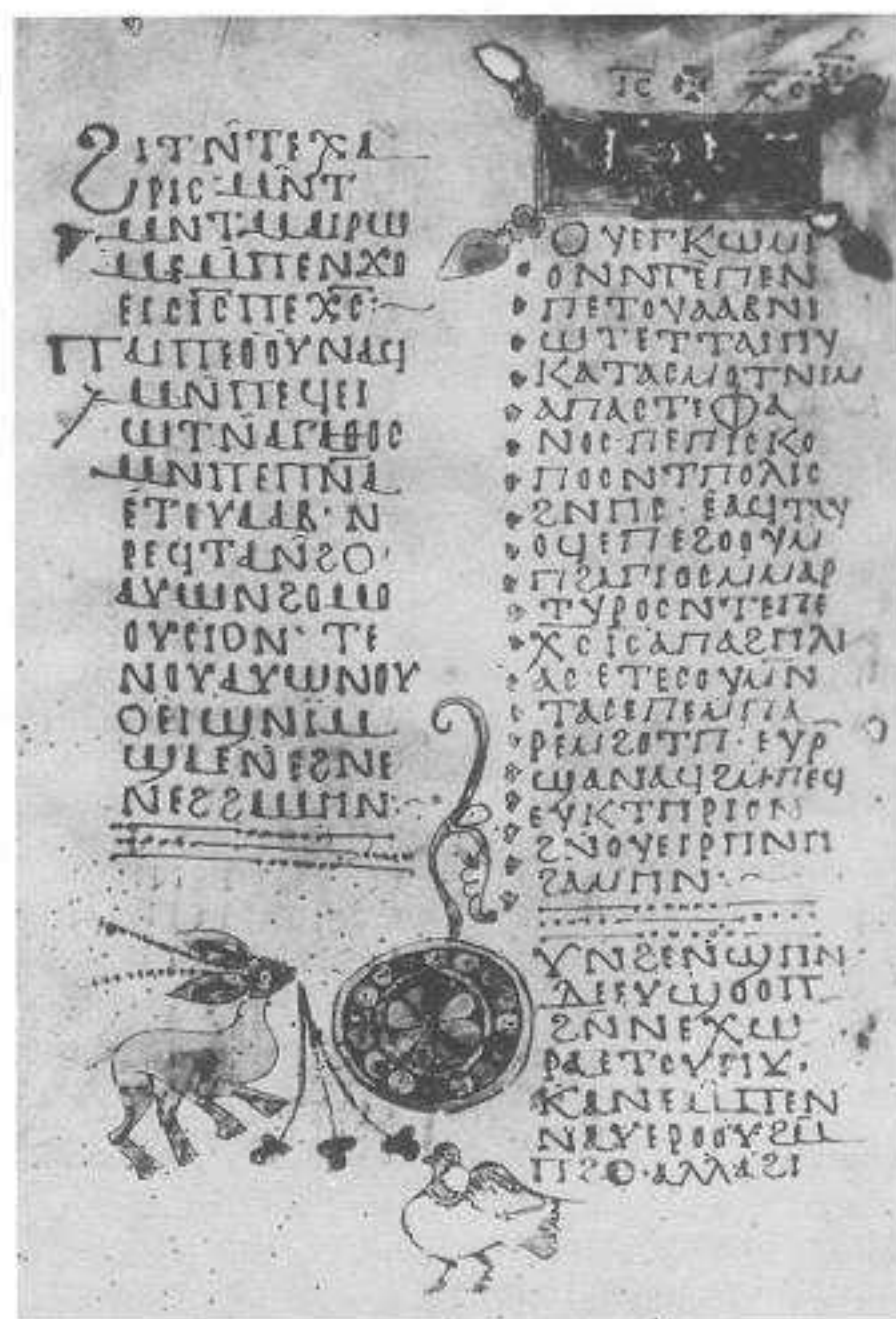 ϩⲓⲧⲛ̄ⲧⲉⲭⲁ
ⲣⲓⲥ·ⲙⲛ̄ⲧ
ⲙⲛⲧⲙⲁⲓⲣⲱ
ⲙⲉⲙⲡⲉⲛϫⲟ
ⲉⲓⲥⲓ̅ⲥ̅ⲡⲉⲭ̅ⲥ̅·
ⲡⲁⲓⲡⲉⲟⲟⲩⲛⲁϥ
ⲙⲛ̄ⲡⲉϥⲉⲓ
ⲱⲧⲛ̄ⲁⲅⲁⲑⲟⲥ
ⲙⲛⲡⲉⲡⲛ̅ⲁ̅
ⲉⲧⲟⲩⲁⲁⲃ·ⲛ
ⲣⲉϥⲧⲁⲛϩⲟ·
ⲁⲩⲱⲛϩⲟⲙⲟ
ⲟⲩⲥⲓⲟⲛ· ⲧⲉ
ⲛⲟⲩⲁⲩⲱⲛⲟⲩ
ⲟⲉⲓϣⲛⲓⲙ
ϣⲁⲉⲛⲉϩⲛⲉ
ⲛⲉϩϩⲁⲙⲏⲛ·
ⲓ̅ⲥ̅ ⲭ̅ⲥ̅
ⲟⲩⲉⲅⲕⲱⲙⲓ
ⲟⲛⲛⲧⲉⲡⲉⲛ
ⲡⲉⲧⲟⲩⲁⲁⲃⲛⲓ
ⲱⲧⲉⲧⲧⲁⲓⲏⲩ
ⲕⲁⲧⲁⲥⲙⲟⲧⲛⲓⲙ
ⲁⲡⲁⲥⲧⲉⲫⲁ
ⲛⲟⲥ·ⲡⲉⲡⲓⲥⲕⲟ
ⲡⲟⲥⲛⲧⲡⲟⲗⲓⲥ
ϩⲛⲏⲥ· ⲉⲁϥⲧⲁⲩ
ⲟϥⲉⲡⲉϩⲟⲟⲩⲙ
ⲡϩⲁⲅⲓⲟⲥⲙⲙⲁⲣ
ⲧⲩⲣⲟⲥⲛⲧⲉⲡⲉ
ⲭ̅ⲥ̅ⲓ̅ⲥ̅ⲁⲡⲁϩⲏⲗⲓ
ⲁⲥ ⲉⲧⲉⲥⲟⲩⲙⲛ
ⲧⲁⲥⲉⲡⲉⲙⲡⲁ
ⲣⲉⲙϩⲟⲧⲡ·ⲉⲩⲣ
ϣⲁⲛⲁϥϩⲙⲡⲉϥ
ⲉⲩⲕⲧⲏⲣⲓⲟⲛ
ϩⲛⲟⲩⲉⲓⲣⲏⲛⲏ
ϩⲁⲙⲏⲛ·
ⲩⲛϩⲉⲛϣⲏⲛ
ⲇⲉⲉⲩϣⲟⲟⲡ
ϩⲛⲛⲉⲭⲱ
ⲣⲁⲉⲧⲟⲩⲏⲩ·
ⲕⲁⲛⲉⲙⲡⲉⲛ
ⲛⲁⲩⲉⲣⲟⲟⲩϩⲙ
ⲡϩⲟ·ⲁⲗⲗⲁϩⲓ